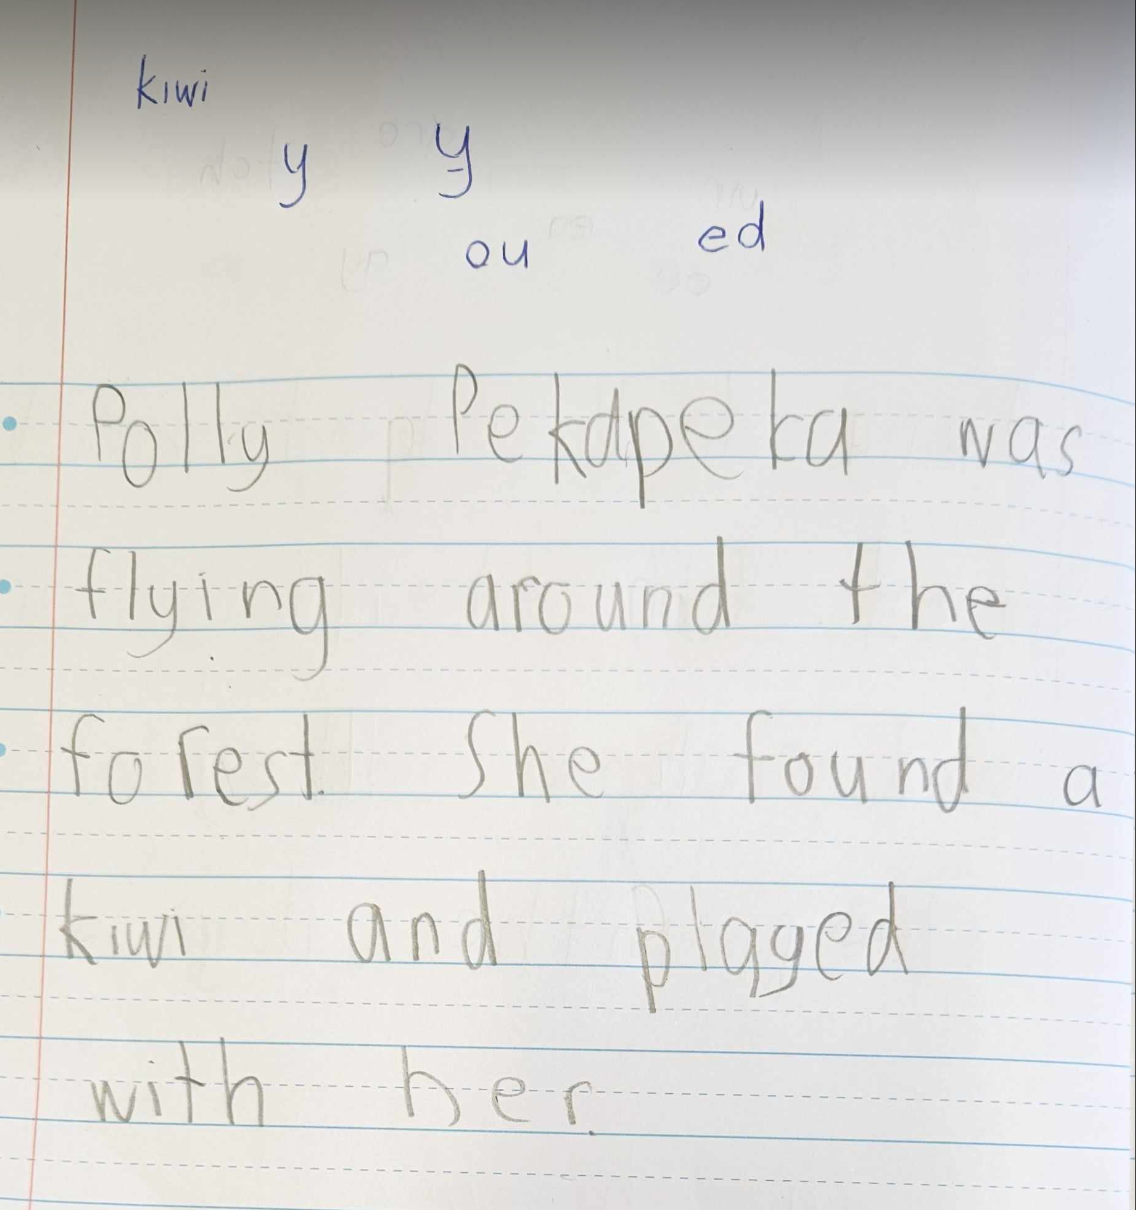 kiwi
y y
ou ed
Polly Pekapeka was
flying around the
forest. She found a
kiwi and played
with her.